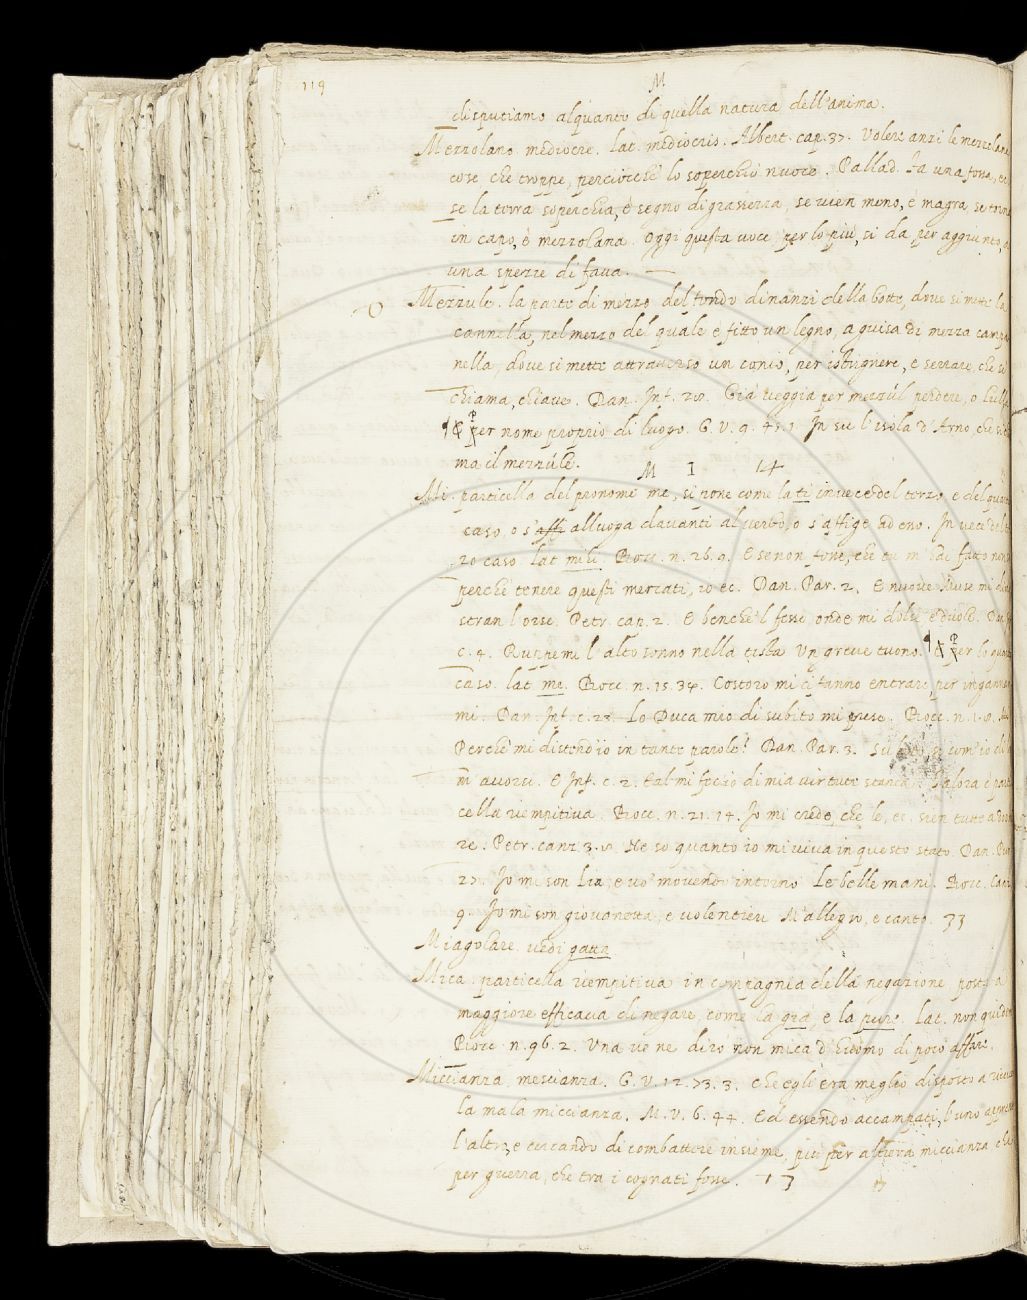 119
M
disputiamo alquanto di quella natura dell'anima.
Mezzolano. mediocre. lat. mediocris. Albert. cap. 37. Volere anzi le mezzolane
cose che troppe, perciocchè lo soperchio nuoce. Pallad. Fa una fossa, e
se la terra soperchia, è segno di grassezza, se vien meno, è magra, se torna
in capo, è mezzolana. Oggi questa voce, per lo più, si da per aggiunto, a
una spezie di fava.
Mezzule. la parte di mezzo del fondo dinanzi della botte, dove si mette la
cannella, nel mezzo del quale è fitto un legno, a guisa di mezza campa
nella, dove si mette attraverso un conio, per istrignere, e serrare, che si
chiama, chiave. Dan. Inf. 28. Già veggia per mezzúl perdere, o lulla
¶ & P per nome proprio di luogo. G. V. 9. In su l'isola d'Arno, che si
ma il mezzúle.
M I 14
Mi. particella del pronome me, si pone come la ti invece del terzo, e del quarto
caso, o s'affi allvoga davanti al verbo, o s'affige ad esso. In vece del
zo caso. lat. mihi. Bocc. n. 26. 9. E se non fosse, che
perchè tenere questi mercati, io ec. Dan. Par. 2. E nuove Muse mi
stran l'orse. Petr. cap. 2. E benche'l fosse onde mi dolse, e duole. Dan.
c. 4. Ruppemi l'alto sonno nella testa Un greve tuono. ¶ & P per lo quarto
caso. lat. me. Bocc. n. 15. 34. Costoro mi ci fanno entrare, per ingannar
mi. Dan. Inf. c. Lo Duca mio di subito mi prese. Bocc. n. 1. 8.
Perchè mi distendo io in tante parole? Dan. Par. 3. com' io
m'avorsi. E Inf. c. 2. Tal mi fec'io di mia virtute stanca. Talora è parti
cella riempitiva. Bocc. n. 21. 14. Io mi credo, che le, ec. sien tutte a
re. Petr. canz. 3. 8. Ne so quanto io mi viva in questo stato. Dan.
27. Io mi son Lia, e vo' movendo intorno Le belle mani. Bocc. canz.
9. Io mi son giovanetta, e volentieri M'allegro, e canto. 33
Miagolare. vedi gatta
Mica. particella riempitiva in compagnia della negazione, posta a
maggiore efficacia di negare, come la già, e la pure. Lat. non quidem
Bocc. n. 96. 2. Una ve ne dirò non mica d'huomo di poco affare.
Miccianza. mescianza. G. V. 12. 73. 3. che egli era meglio disposto a
la mala miccianza. M. V. 6. 44. Ed essendo accampati, l'uno
l'altro, e cercando di combattere insieme, più per altiera miccianza che
per guerra, che tra i cognati fosse. 13